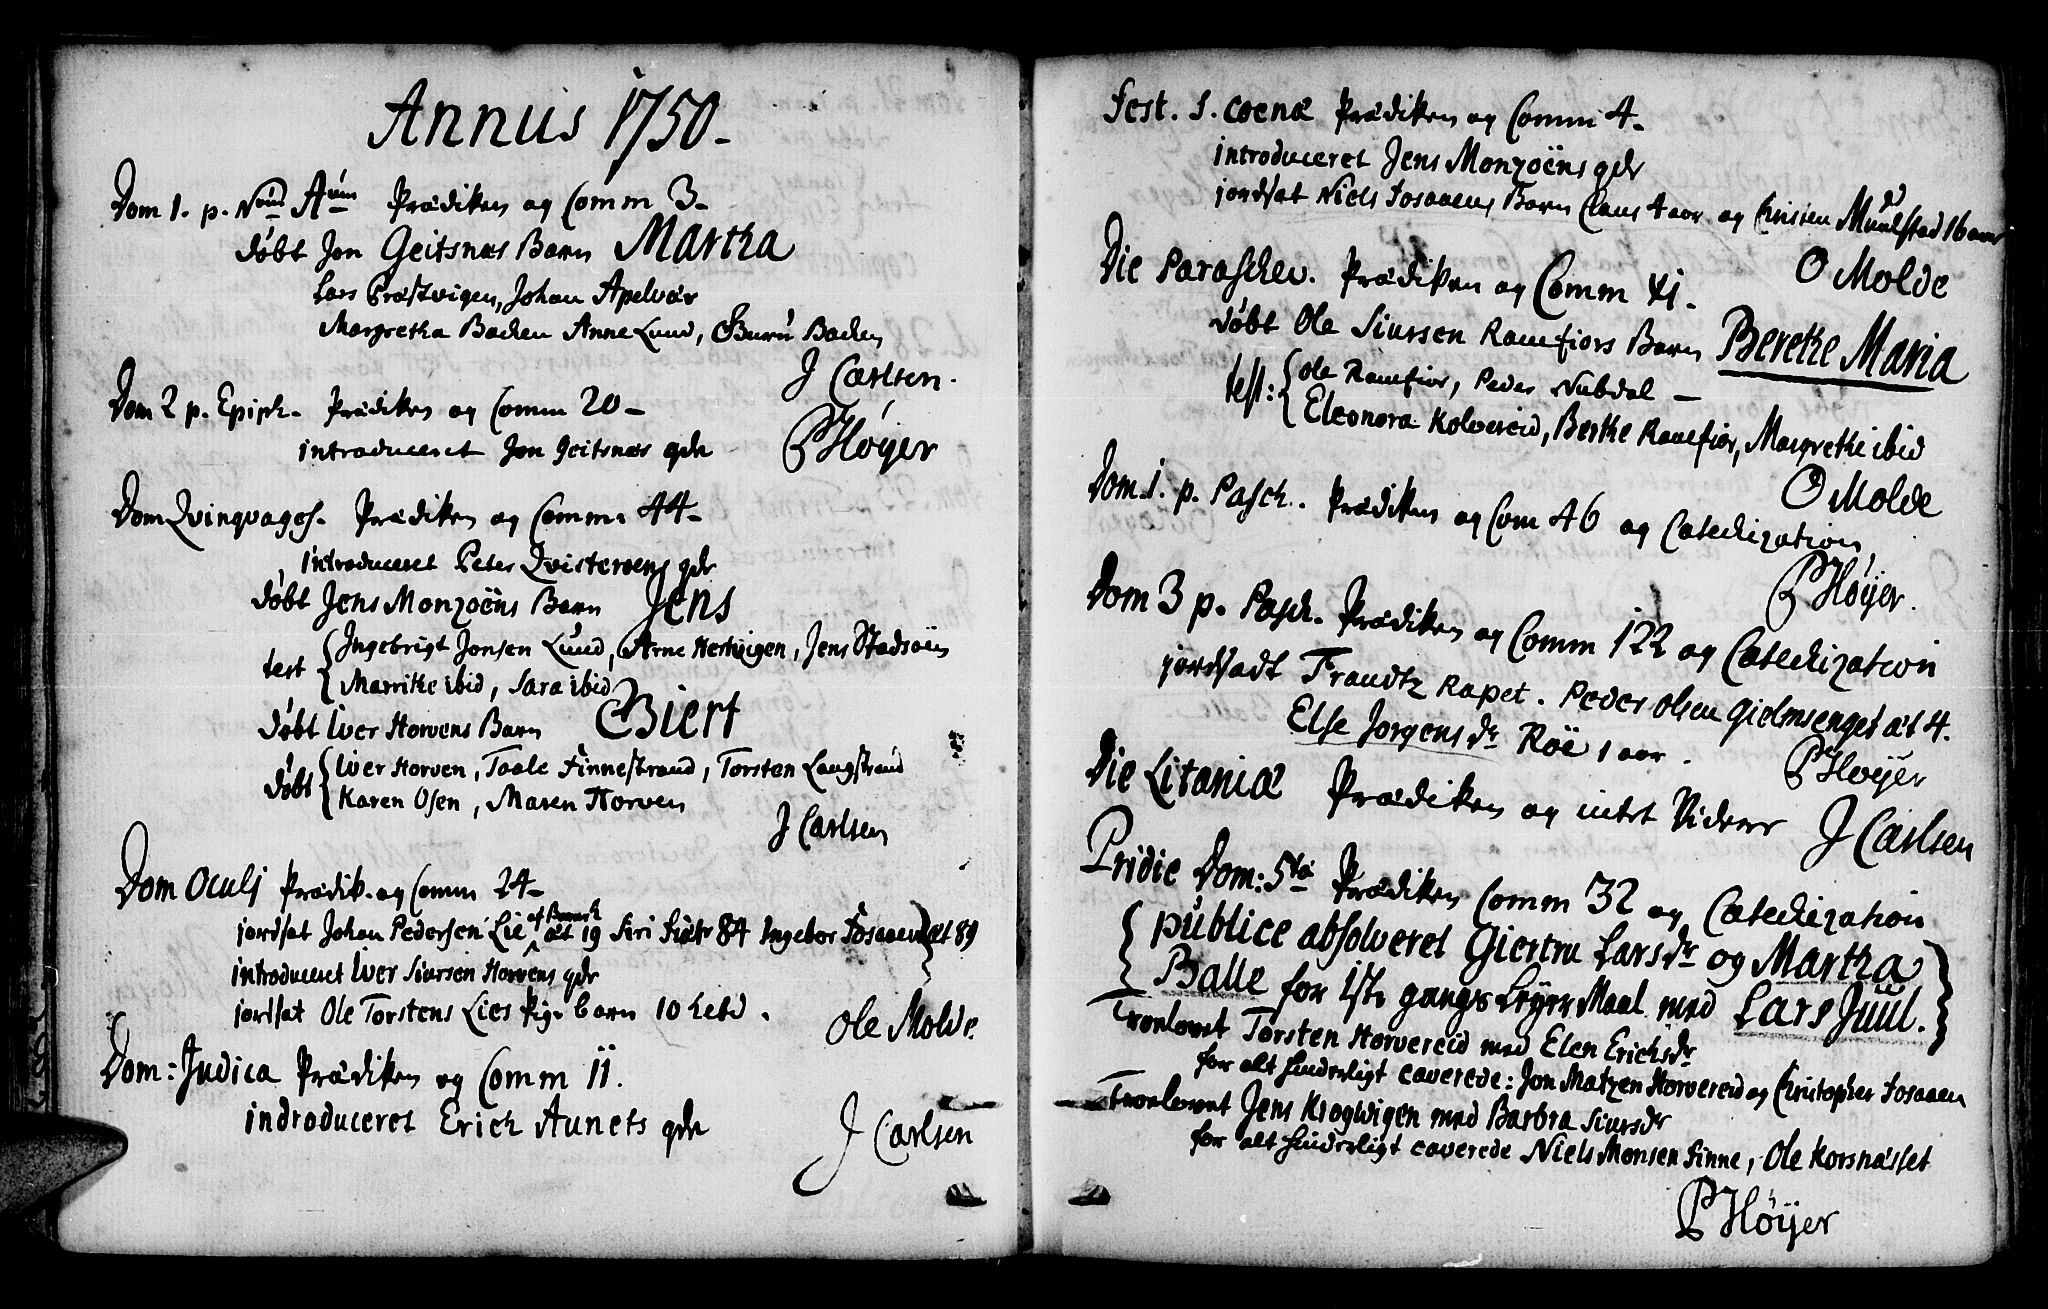 Annus 1750.
Dom 1. p. Nov: Aum Prædiken og Comm 3.
døbt Jon Geitsnæs Barn Martha
Lars Præstvigen, Johan Apelvær
Margretha Bachen Anne Lund, Guru Bachen
J Carlsen.
Dom 2 p. Epiph. Prædiken og Comm 20.
introduceret Jon Geitsnæs qde
P Høyer
Dom Qvinqvages. Prædiken og Comm. 44.
introduceret Peter Qvisteroens qde
døbt Jens Monzoëns Barn Jens
test Ingebrigt Jonsen Lund, Arne Hestvigen, Jens Stadsøen
Marrithe ibid, Sara ibid
døbt Iver Horvens Barn Biert
døbt Iver Horven, Taale Finnestrand, Torsten Langstrand
Karen Osen, Maren Horven
J Carlsen
Dom Oculj Prædik. og Comm 24.
jordsat Johan Pedersen Lie æt 19 Siri 84 Ingebor Fosaaen æt 89
introduceret Iver Siursen Horvens qde
jordsat Ole Torstens Lies Pige barn 10 hebd.
Ole Molde.
Dom: Judica Prædiken og Comm 11.
indroduceret Erich Aunets qde
J Carlsen
Fest. S. Coenæ Prædiken og Comm 4.
introduceret Jens Monzoëns qde
jordsat Niels Fosaaens Barn Claus 4 aar og Christen Muulstad 16 aar
O Molde
Die Paraschev. Prædiken og Comm 41.
døbt Ole Siursen Ramfiors Barn Berethe Maria
test: Ole Ramfior, Peder Nubdal
Eleonora Kolvereid, Berthe Ramfior, Margrethe ibid
O Molde
Dom. 1. p. Pasch. Prædiken og Com 46 og Catechization,
P Høyer.
Dom 3 p. Pasch. Prædiken og Comm 122 og Catechization
jordsadt Frandtz Rapet. Peder Olsen Gielmsenget æt 4.
Else Jorgensdr Röe 1 aar.
P Høyer
Die Litaniæ Prædiken og intet Videre
J Carlsen
Pridie Dom: 5ta Prædiken Comm 32 og Catechization
publice absolveret Giertru Larsdr og Martha
Balle for 1ste gangs Leyer Maal med Lars Juul.
Trolovet Torsten Horvereid med Elen Erichsdr
for alt hinderligt caverede: Jon Matzen Horvereid og Christopher Fosaaen
Trolovet Jens Krogwigen med Barbra Siursdr
for alt hinderligt caverede Niels Monsen Finne, Ole Korsnæsset
P Høyer